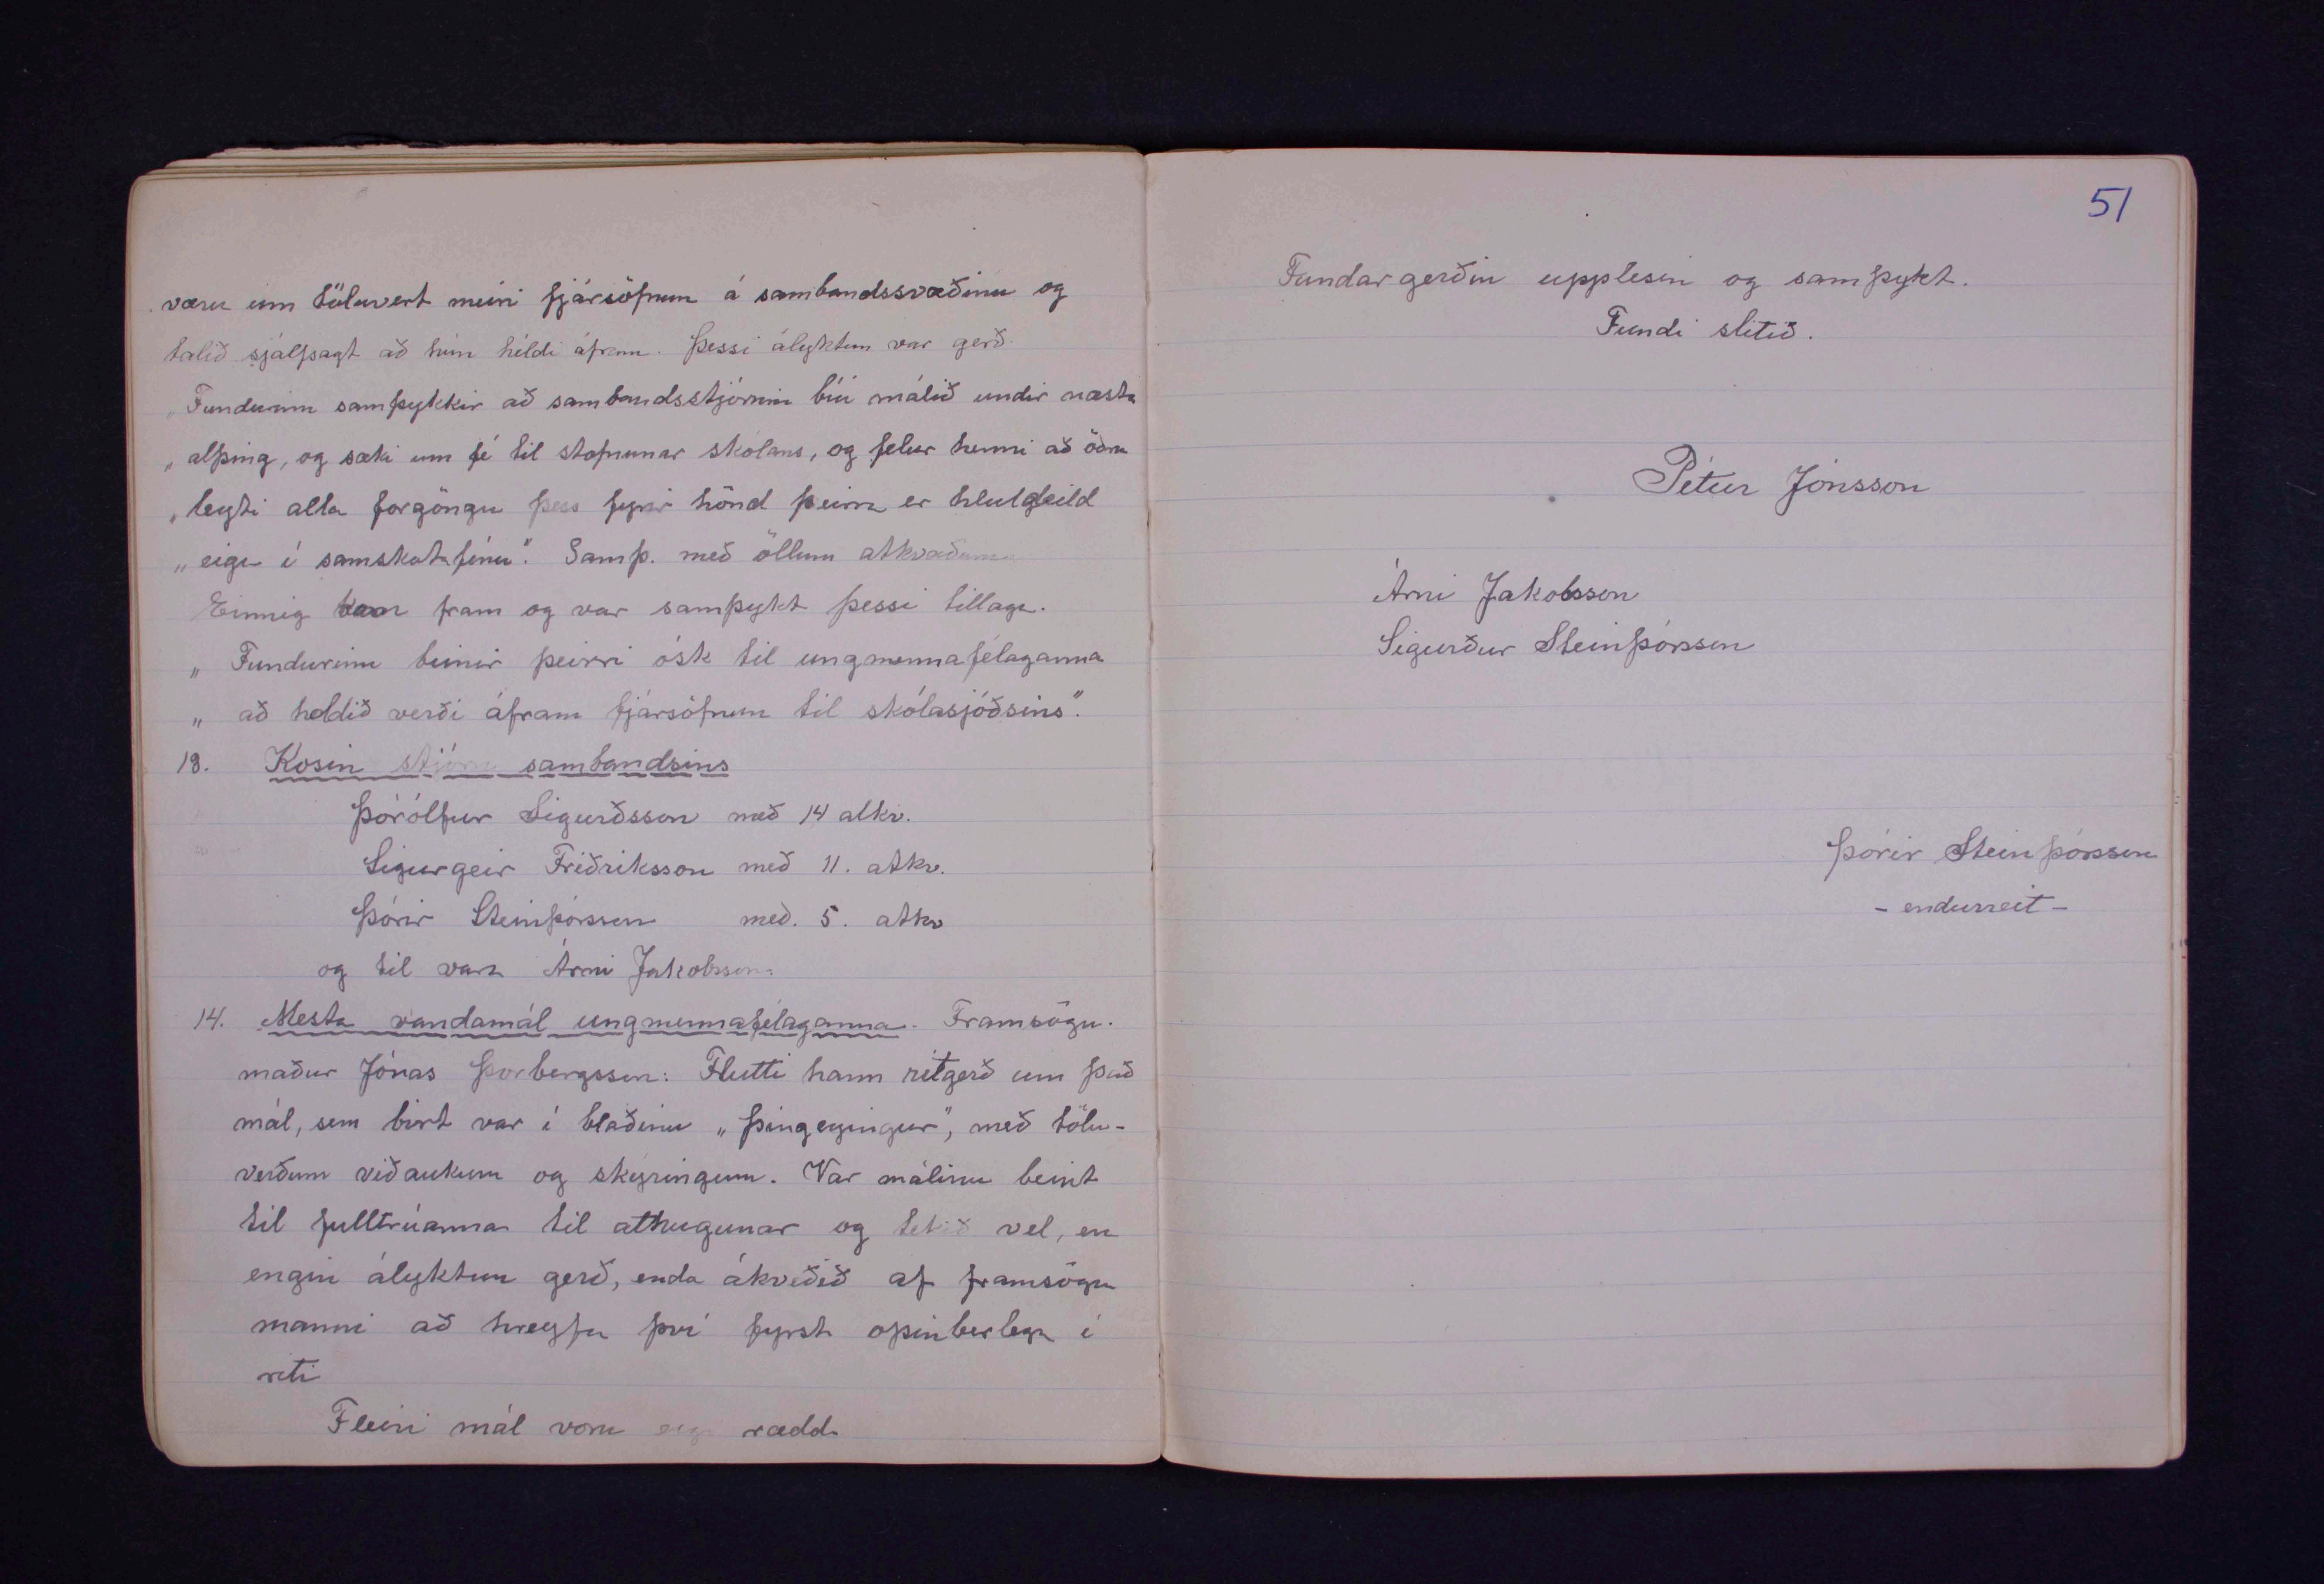 væru um töluvert meiri fjársöfnun á sambandssvæðinu og
talið sjálfsagt að hún héldi áfram. Þessi ályktun var gerð.
„Fundurinn samþykkir að sambandsstjórnin búi málið undir næsta
„alþing, og sæki um fé til stofnunar skólans, og felur henni að öðru
„leyti alla forgöngu þess fyrir hönd þeirra er hlutdeild
„eiga í samskotafénu“. Samþ. með öllum atkvæðum
Einnig kom fram og var samþykt þessi tillaga.
„Fundurinn beinir þeirri ósk til ungmennafélaganna
„að haldið verði áfram fjársöfnun til skólasjóðsins“.
13. Kosin stjórn sambandsins
Þórólfur Sigurðsson með 14 atkv.
Sigurgeir Friðriksson með 11. atkv.
Þórir Steinþórsson með. 5. atkv
og til vara Árni Jakobsson.
14. Mesta vandamál ungmennafélaganna. Framsögu-
maður Jónas Þorbergsson: Flutti hann ritgerð um það
mál, sem birt var í blaðinu „Þingeyingur“, með tölu-
verðum viðaukum og skýringum. Var málinu beint
til fulltrúanna til athugunar og tekið vel, en
engin ályktun gerð, enda ákveðið af framsögu
manni að hreyfa því fyrst opinberlega í
riti
Fleiri mál voru eigi rædd
51
Fundargerðin upplesin og samþykt.
Fundi slitið.
Pétur Jónsson
Árni Jakobsson
Sigurður Steinþórsson
Þórir Steinþórsson
- endurreit -